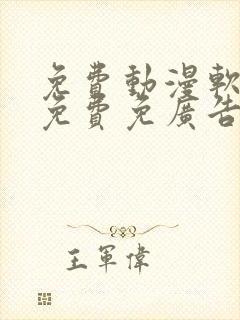 免費動漫軟
免費免廣告
王軍偉